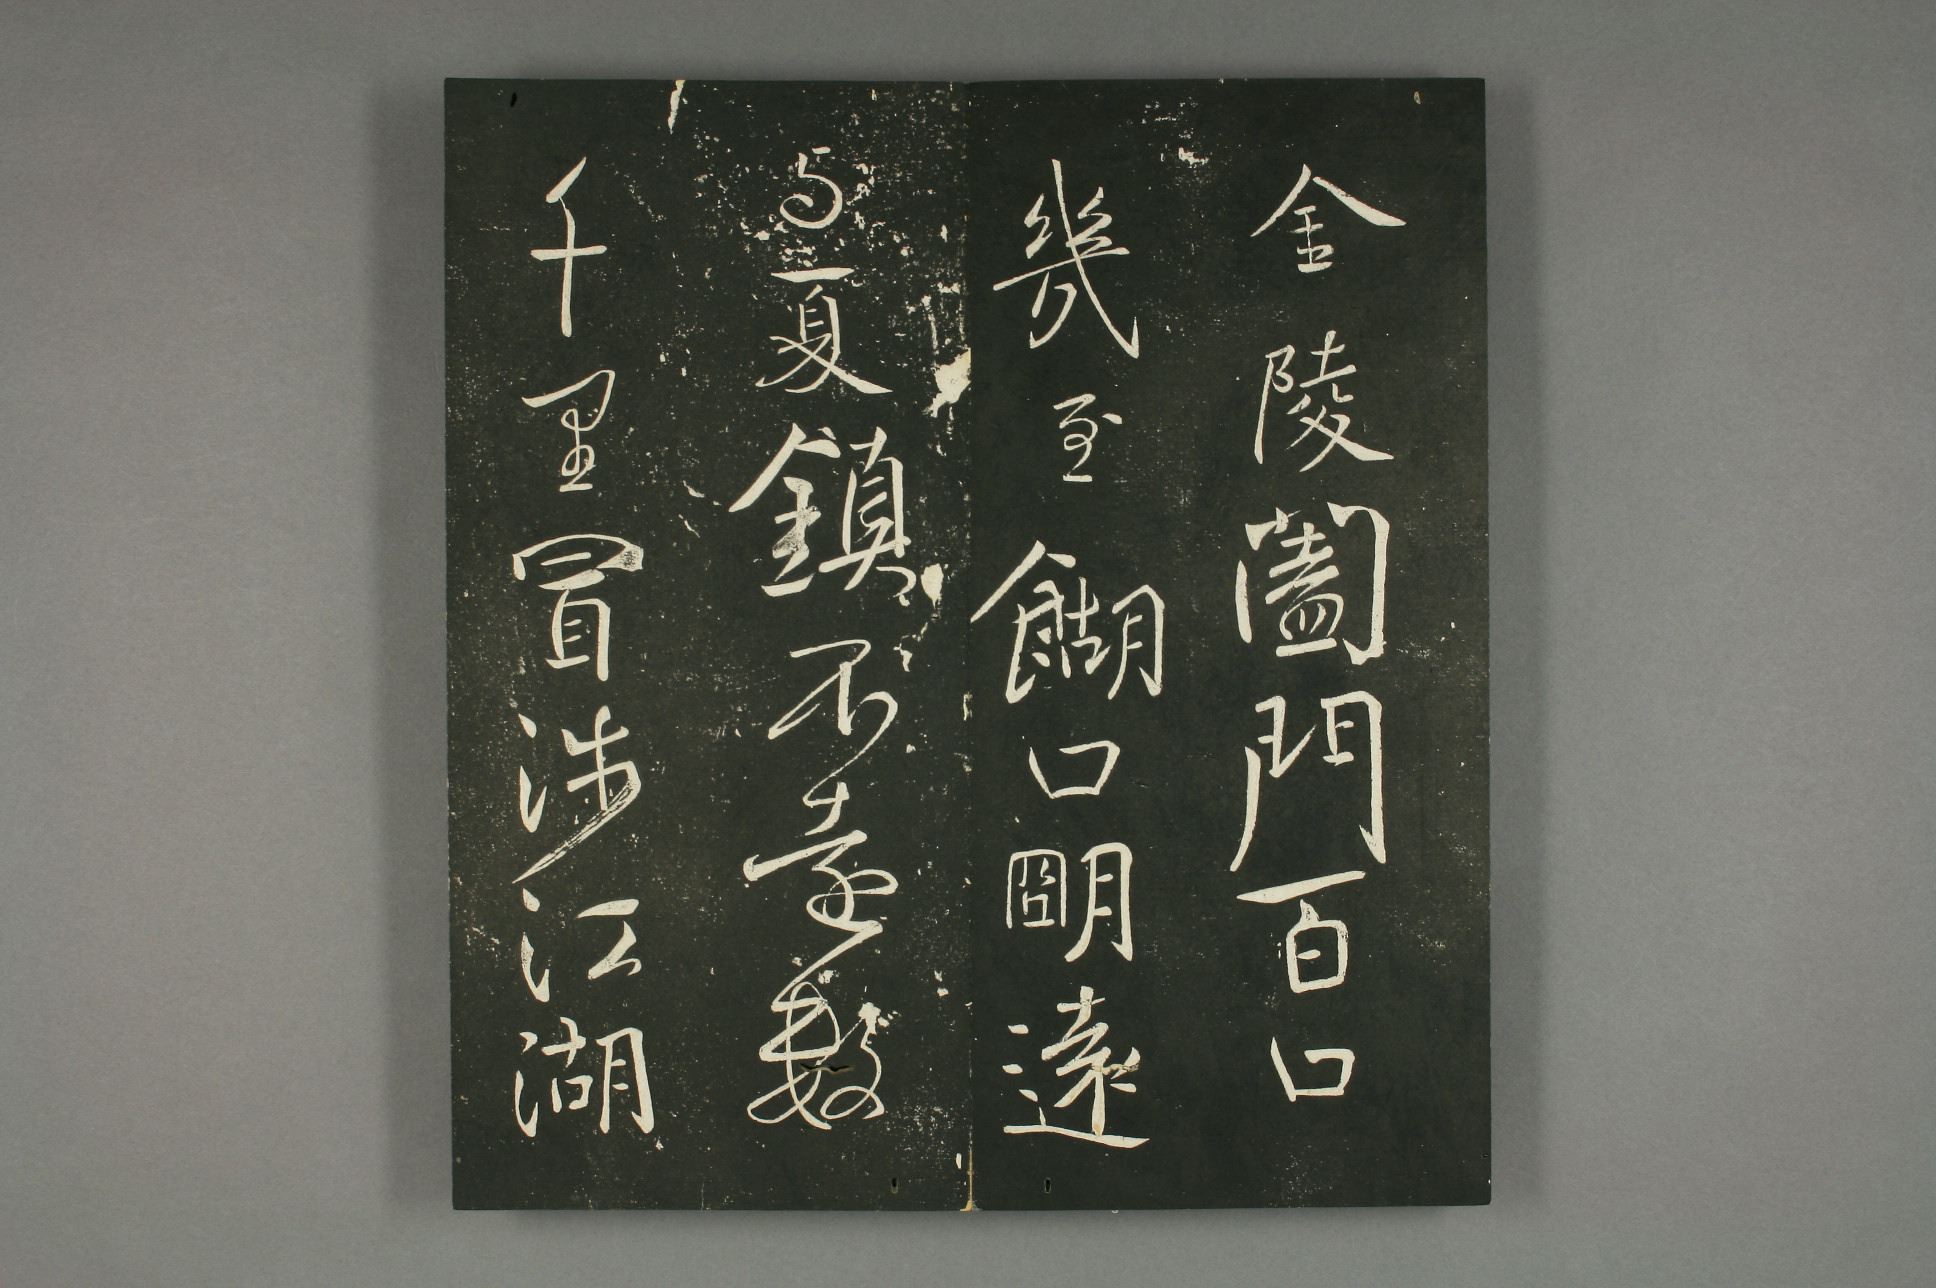 金陵闔門百口
幾至餬口朙遠
与夏鎮不遠數
千里冒涉江湖